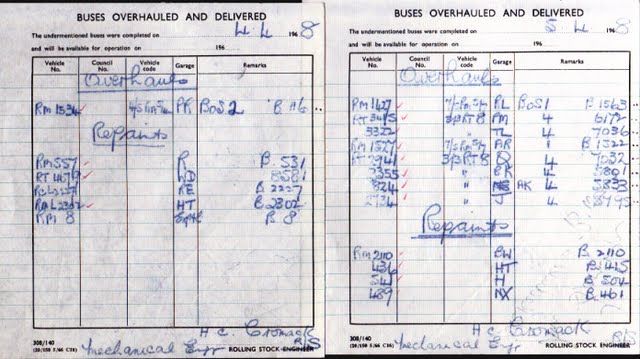 BUSES OVERHAULED AND DELIVERED
The undermentioned buses were completed on 4.4 196 8
and will be available for operation on 196
Vehicle No. Council No. Vehicle code Garage Remarks
Overhauls
RM 1534 PR BoS 2
Repaints
RM 557 R B. 531
RT 4676 WD 8581
RCL 2227 RE B 2227
RML 2302 HT B 2302
RM 8 B 8
H C. Cromack
R/S
308/140
Mechanical Engr ROLLING STOCK ENGINEER
BUSES OVERHAULED AND DELIVERED
The undermentioned buses were completed on 5.4 196 8
and will be available for operation on 196
Vehicle No. Council No. Vehicle code Garage Remarks
Overhauls
RM 1627 PL BoS 1 B 1563
RT 3415 3/3 RT 8 PM 4 6172
3322 " TL 4 7036
RM 1527 AR " B 1522
RT 2941 3/3 RT 8 Q 4 7032
3355 " BK 4 5801
824 " AK 4 5833
2734 " J 4
Repaints
RM 2110 BW B. 2110
436 HT B. 415
H B. 504
489 NX B. 461
H C. Cromack
R/S
308/140
Mechanical Engr ROLLING STOCK ENGINEER